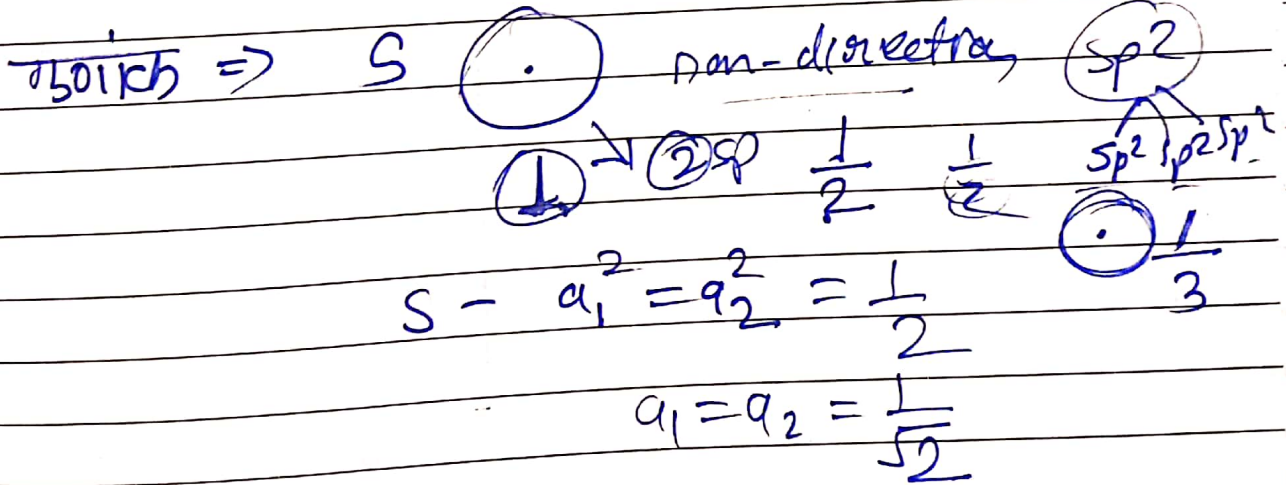 गुणांक => S non-directional sp2
sp2 sp2 sp2
1 → 2 sp 1/2 1/2
1/3
S - a₁² = a₂² = 1/2
a₁ = a₂ = 1/√2